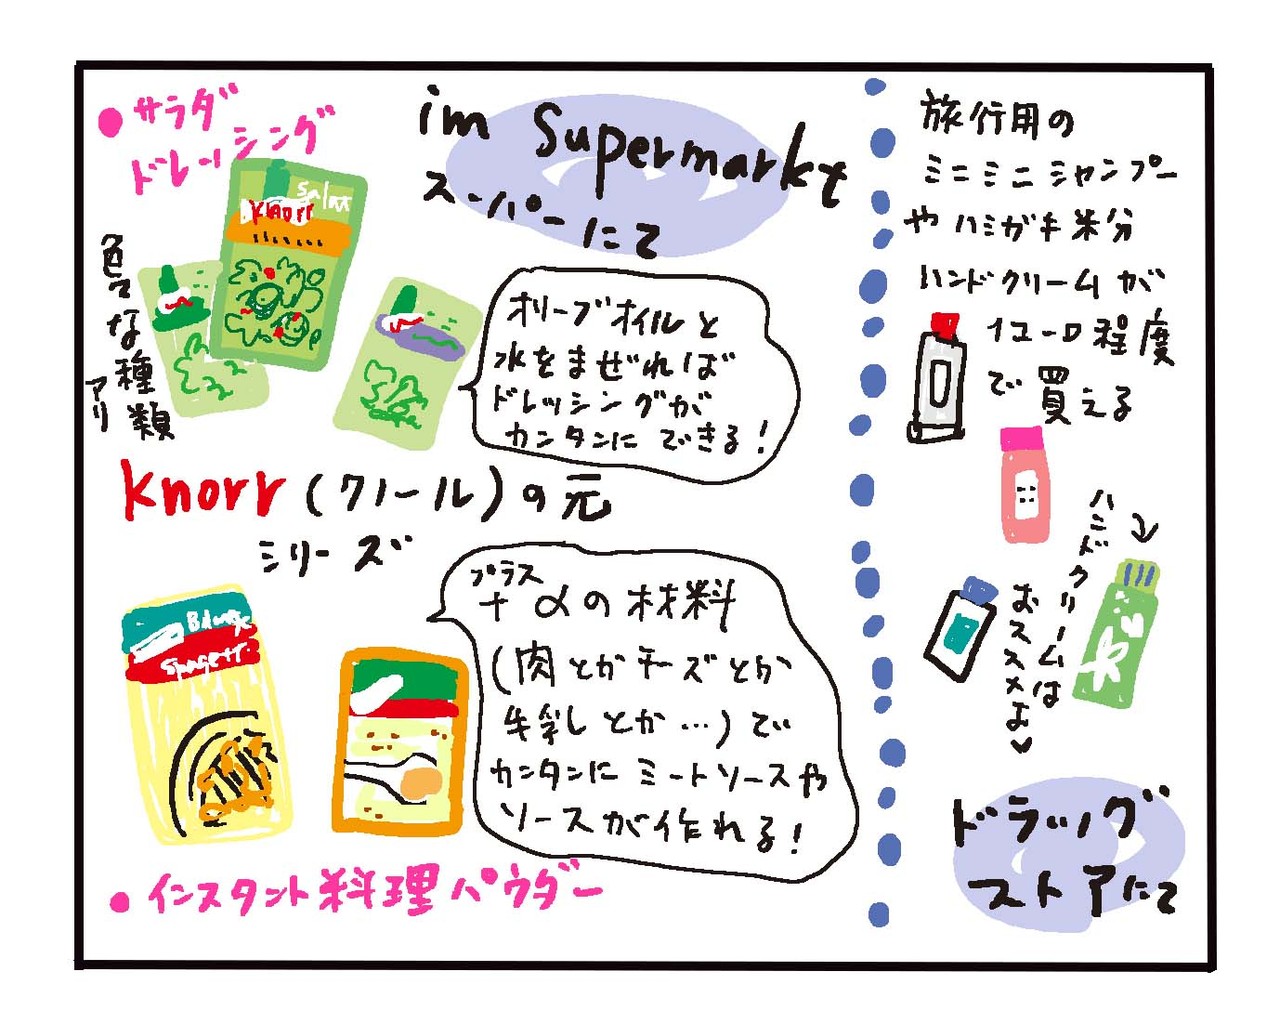 im Supermarkt
スーパーにて
● サラダ
ドレッシング
Salat
Knorr
色々な種類
アリ
オリーブオイルと
水をまぜれば
ドレッシングが
カンタンにできる!
Knorr (クノール)の元
シリーズ
プラス
+αの材料
(肉とかチーズとか
牛乳とか…)で
カンタンにミートソースや
ソースが作れる!
● インスタント料理パウダー
旅行用の
ミニミニシャンプー
やハミガキ粉
ハンドクリームが
1ユーロ程度
で買える
ハンドクリームは
おススメよ♥
ドラッグ
ストアにて